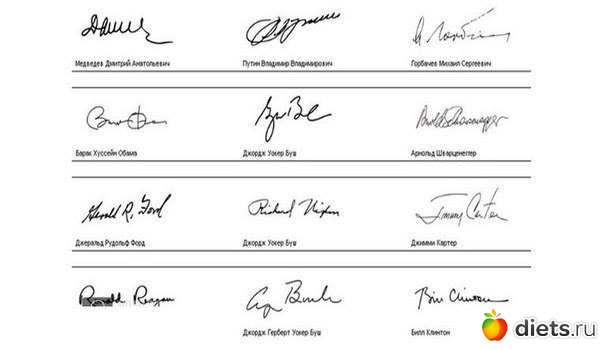 Медведев Дмитрий Анатольевич
Путин Владимир Владимирович
Горбачев Михаил Сергеевич
Барак Хуссейн Обама
Джордж Уокер Буш
Арнольд Шварценеггер
Gerald R. Ford
Richard Nixon
Jimmy Carter
Джеральд Рудольф Форд
Джордж Уокер Буш
Джимми Картер
Ronald Reagan
Bill Clinton
Джордж Герберт Уокер Буш
Билл Клинтон
diets.ru